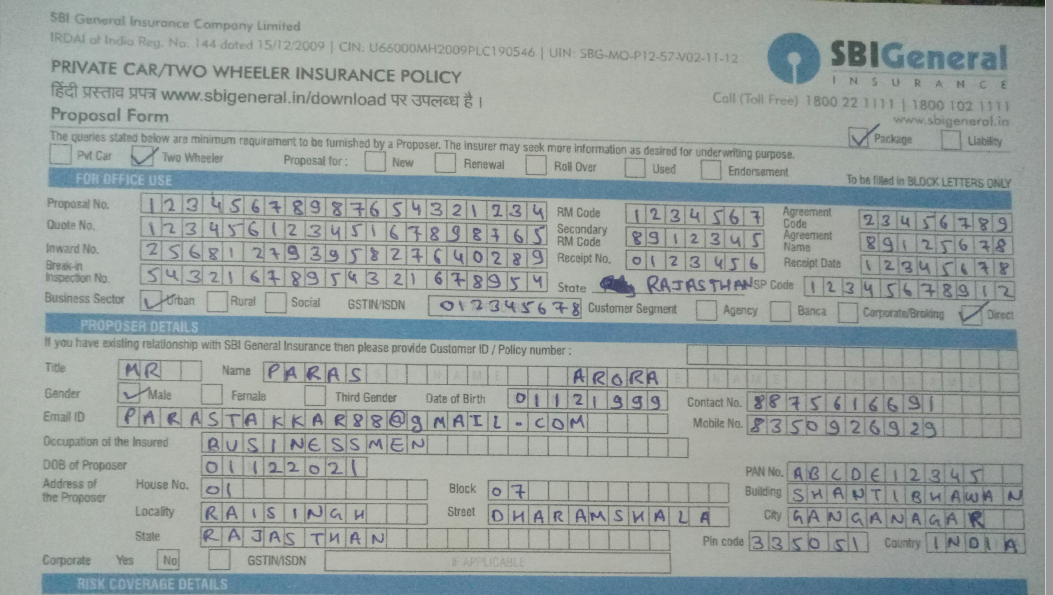 SBI General Insurance Company Limited
IRDAI of India Reg. No. 144 dated 15/12/2009 | CIN: U66000MH2009PLC190546 | UIN: SBG-MO-P12-57-V02-11-12
SBIGeneral
INSURANCE
PRIVATE CAR/TWO WHEELER INSURANCE POLICY
हिंदी प्रस्ताव प्रपत्र www.sbigeneral.in/download पर उपलब्ध है।
Call (Toll Free) 1800 22 1111 | 1800 102 1111
www.sbigeneral.in
Proposal Form
The queries stated below are minimum requirement to be furnished by a Proposer. The insurer may seek more information as desired for underwriting purpose.
Package Liability
Pvt Car Two Wheeler Proposal for : New Renewal Roll Over Used Endorsement
FOR OFFICE USE To be filled in BLOCK LETTERS ONLY
Proposal No. 1234567898765432 1234 RM Code 1234567 Agreement Code 23456789
Quote No. 12345612345167898765 Secondary RM Code 8912345 Agreement Name 89125678
Inward No. 25681279395827640289 Receipt No. 0123456 Receipt Date 12345678
Break-in Inspection No. 54321678954321678954 State RAJASTHAN SP Code 12345678912
Business Sector Urban Rural Social GSTIN/ISDN 012345678 Customer Segment Agency Banca Corporate/Broking Direct
PROPOSER DETAILS
If you have existing relationship with SBI General Insurance then please provide Customer ID / Policy number :
Title MR Name PARAS ARORA
Gender Male Female Third Gender Date of Birth 01121999 Contact No. 8875616691
Email ID PARASTAKKAR88@gMAIL.COM Mobile No. 8350926929
Occupation of the Insured BUSINESSMEN
DOB of Proposer 01122021 PAN No. ABCDE12345
Address of the Proposer House No. 01 Block 07 Building SHANTIBHAWAN
Locality RAISINGH Street DHARAMSHALA City GANGANAGAR
State RAJASTHAN Pin code 335051 Country INDIA
Corporate Yes No GSTIN/ISDN IF APPLICABLE
RISK COVERAGE DETAILS